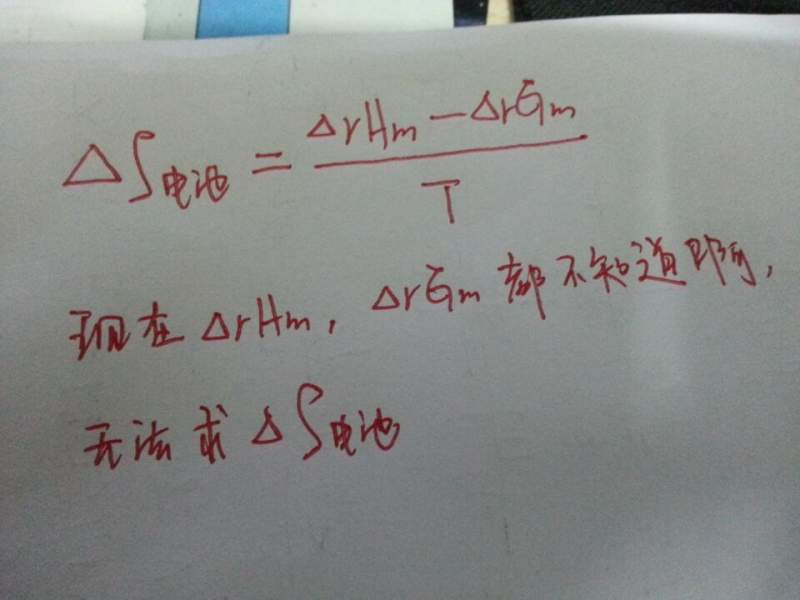 ΔS电池 = (ΔrHm − ΔrGm) / T
现在 ΔrHm, ΔrGm 都不知道啊,
无法求 ΔS电池